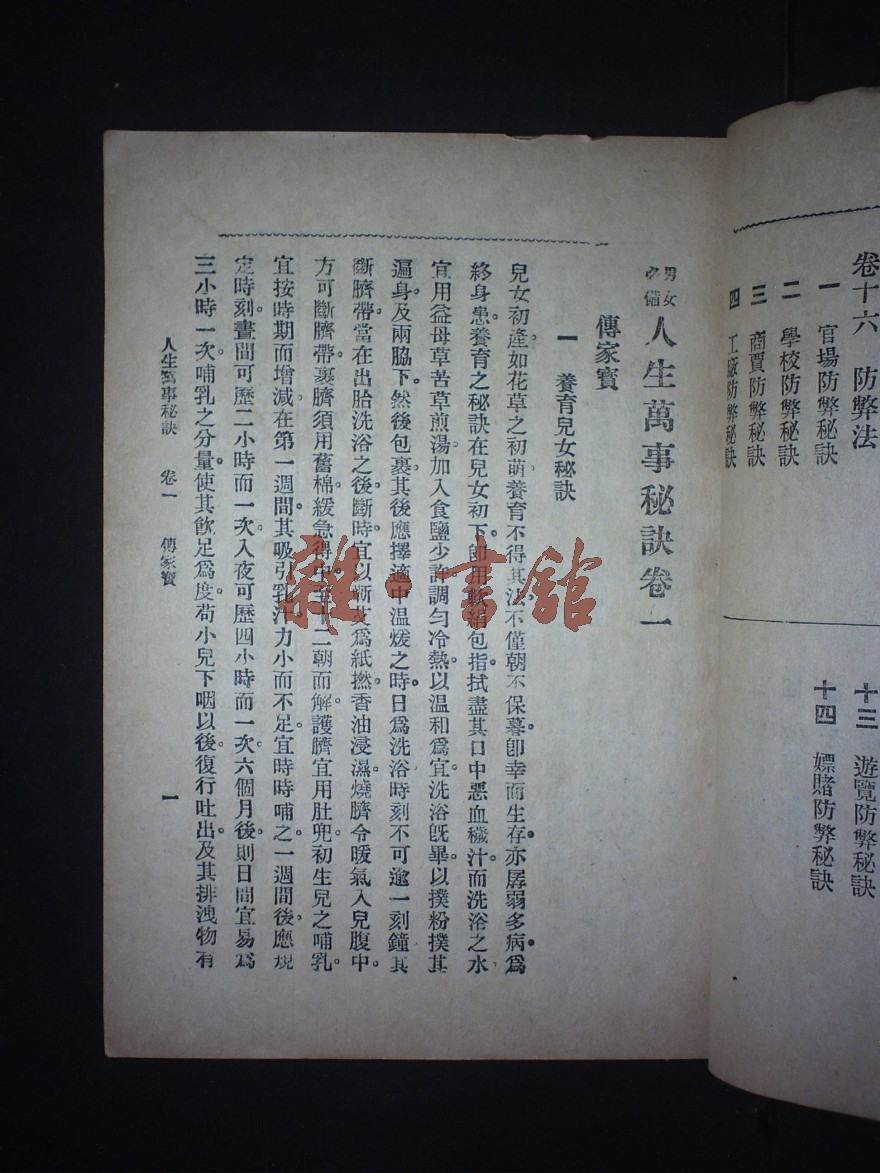 卷十六　防弊法
一　官場防弊秘訣
二　學校防弊秘訣
三　商賈防弊秘訣
四　工廠防弊秘訣
十三　遊覽防弊秘訣
十四　嫖賭防弊秘訣
男女必備　人生萬事秘訣卷一
傳家寶
一　養育兒女秘訣
兒女初產如花草之初萌養育不得其法不僅朝不保暮。卽幸而生存。亦孱弱多病。爲
終身患。養育之秘訣在兒女初下。卽用軟絹包指拭盡其口中惡血穢汁。而洗浴之水
宜用益母草苦草煎湯。加入食鹽少許。調勻冷熱。以溫和爲宜。洗浴旣畢。以撲粉撲其
遍身。及兩脇下。然後包裹。其後應擇適中温煖之時。日爲洗浴時刻不可逾一刻鐘其
斷臍帶。當在出胎洗浴之後。斷時宜以蘄艾爲紙撚。香油浸濕。燒臍令暖氣入兒腹中。
方可斷臍帶。裹臍須用舊棉。緩急得中。至十二朝而解。護臍宜用肚兜。初生兒之哺乳。
宜按時期而增減。在第一週間。其吸引乳汁。力小而不足。宜時時哺之。一週間後。應規
定時刻。晝間可歷二小時而一次。入夜可歷四小時而一次。六個月後。則日間宜易爲
三小時一次。哺乳之分量。使其飲足爲度。苟小兒下咽以後。復行吐出。及其排洩物有
人生萬事秘訣　卷一　傳家寶　一
雜·書館